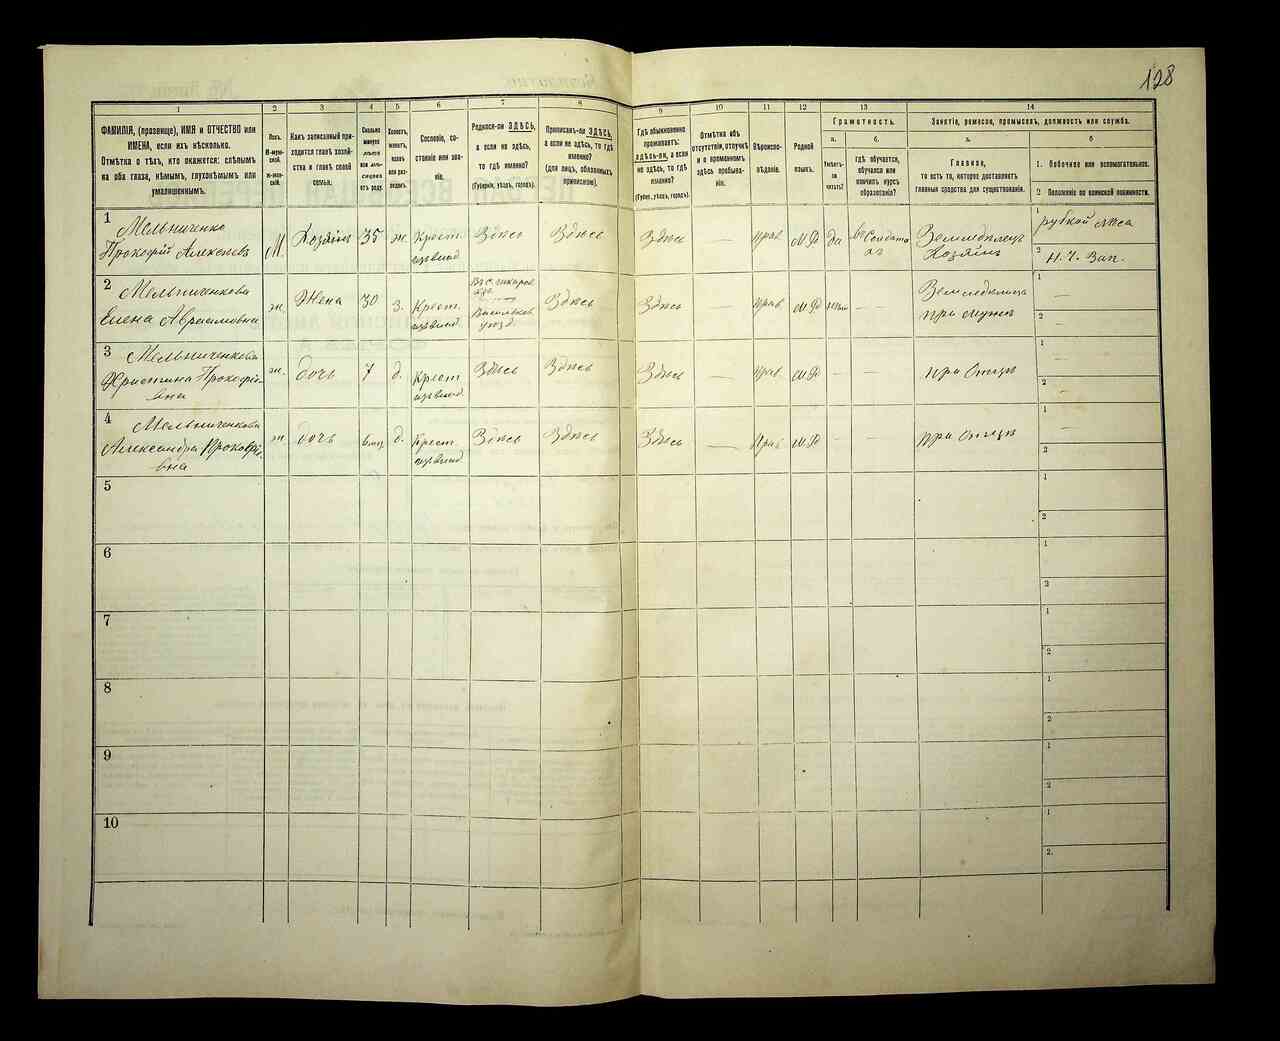 128
1
2
3
4
5
6
7
8
9
10
11
12
13
14
ФАМИЛІЯ, (прозвище), ИМЯ и ОТЧЕСТВО или
ИМЕНА, если ихъ нѣсколько.
Отмѣтка о тѣхъ, кто окажется: слѣпымъ
на оба глаза, нѣмымъ, глухонѣмымъ или
умалишеннымъ.
Полъ.
М-муж-
ской.
Ж-жен-
скій.
Какъ записанный при-
ходится главѣ хозяй-
ства и главѣ своей
семьи.
Сколько
минуло
лѣтъ
или мѣ-
сяцевъ
отъ роду.
Холостъ,
женатъ,
вдовъ
или раз-
веденъ.
Сословіе, со-
стояніе или зва-
ніе.
Родился-ли ЗДѢСЬ,
а если не здѣсь,
то гдѣ именно?
(Губернія, уѣздъ, городъ).
Приписанъ-ли ЗДѢСЬ,
а если не здѣсь, то гдѣ
именно?
(для лицъ, обязанныхъ
припискою).
Гдѣ обыкновенно
проживаетъ:
здѣсь-ли, а если
не здѣсь, то гдѣ
именно?
(Губер., уѣздъ, городъ).
Отмѣтка объ
отсутствіи, отлучкѣ
и о временномъ
здѣсь пребыва-
ніи.
Вѣроиспо-
вѣданіе.
Родной
языкъ.
Грамотность.
а.
Умѣетъ-
ли
читать?
б.
гдѣ обучается,
обучался или
кончилъ курсъ
образованія?
Занятіе, ремесло, промыселъ, должность или служба.
а.
Главное,
то есть то, которое доставляетъ
главныя средства для существованія.
б
1. Побочное или вспомогательное.
2 Положеніе по воинской повинности.
1
Мельниченко
Прокофій Алексѣевъ
М.
Хозяинъ
35
ж.
Крест.
Здѣсь
Здѣсь
Здѣсь
—
Прав.
М.Р.
да
Земледѣлецъ
Хозяинъ
1 рубкой лѣса
2 Н. Ч. Зап.
2
Мельниченкова
Елена
ж.
Жена
30
З.
Крест.
Здѣсь
Здѣсь
—
Прав.
М.Р.
нѣтъ
—
при мужѣ
1
—
2
—
3
Мельниченкова
Христина Прокофіе-
вна
ж.
дочь
7
д.
Крест.
Здѣсь
Здѣсь
Здѣсь
—
Прав.
М.Р.
—
—
при Отцѣ
1
—
2
—
4
Мельниченкова
Александра Прокофіе-
вна
ж
дочь
6 мѣ
д.
Крест.
Здѣсь
Здѣсь
Здѣсь
—
Прав.
М.Р.
—
—
при Отцѣ
1
—
2
5
1
2
6
1
2
7
1
2
8
1
2
9
1
2
10
1
2.